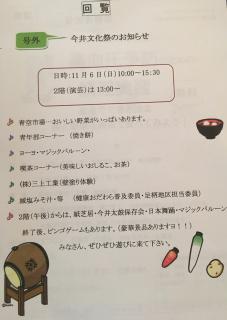 回覧
号外
今井文化祭のお知らせ
日時:11月6日(日)10:00~15:30
2階(演芸)は13:00~
青空市場…おいしい野菜がいっぱいあります。
青年部コーナー (焼き餅)
ヨーヨ・マジックバルーン・
喫茶コーナー(美味しいおしるこ、お茶)
(株)三上工業(壁塗り体験)
減塩みそ汁・等 (健康おだわら普及員・足柄地区担当委員)
2階(午後)からは、紙芝居・今井太鼓保存会・日本舞踊・マジックバルーン
終了後、ビンゴゲームもあります。(豪華景品ありますヨ!!)
みなさん、ぜひぜひ遊びに来て下さい。